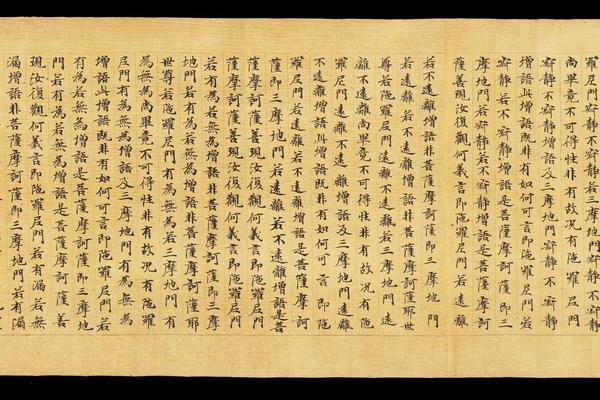 羅尼門寂靜不寂靜若三摩地門寂靜不寂靜
尚畢竟不可得性非有故況有陀羅尼門
寂靜不寂靜增語及三摩地門寂靜不寂靜
增語此增語既非有如何可言即陀羅尼門若
寂靜若不寂靜增語是菩薩摩訶薩即三
摩地門若寂靜若不寂靜增語是菩薩摩訶
薩善現汝復觀何義言即陀羅尼門若遠離
若不遠離增語非菩薩摩訶薩即三摩地門
若遠離若不遠離增語非菩薩摩訶薩耶世
尊若陀羅尼門遠離不遠離若三摩地門遠
離不遠離尚畢竟不可得性非有故況有陀
羅尼門遠離不遠離增語及三摩地門遠離
不遠離增語此增語既非有如何可言即陀
羅尼門若遠離若不遠離增語是菩薩摩訶
薩即三摩地門若遠離若不遠離增語是菩
薩摩訶薩善現汝復觀何義言即陀羅尼門
若有為若無為增語非菩薩摩訶薩即三摩
地門若有為若無為增語非菩薩摩訶薩耶
世尊若陀羅尼門有為無為若三摩地門有
為無為尚畢竟不可得性非有故況有陀羅
尼門有為無為增語及三摩地門有為無為
增語此增語既非有如何可言即陀羅尼門若
有為若無為增語是菩薩摩訶薩即三摩地
門若有為若無為增語是菩薩摩訶薩善
現汝復觀何義言即陀羅尼門若有漏若無
漏增語非菩薩摩訶薩即三摩地門若有漏